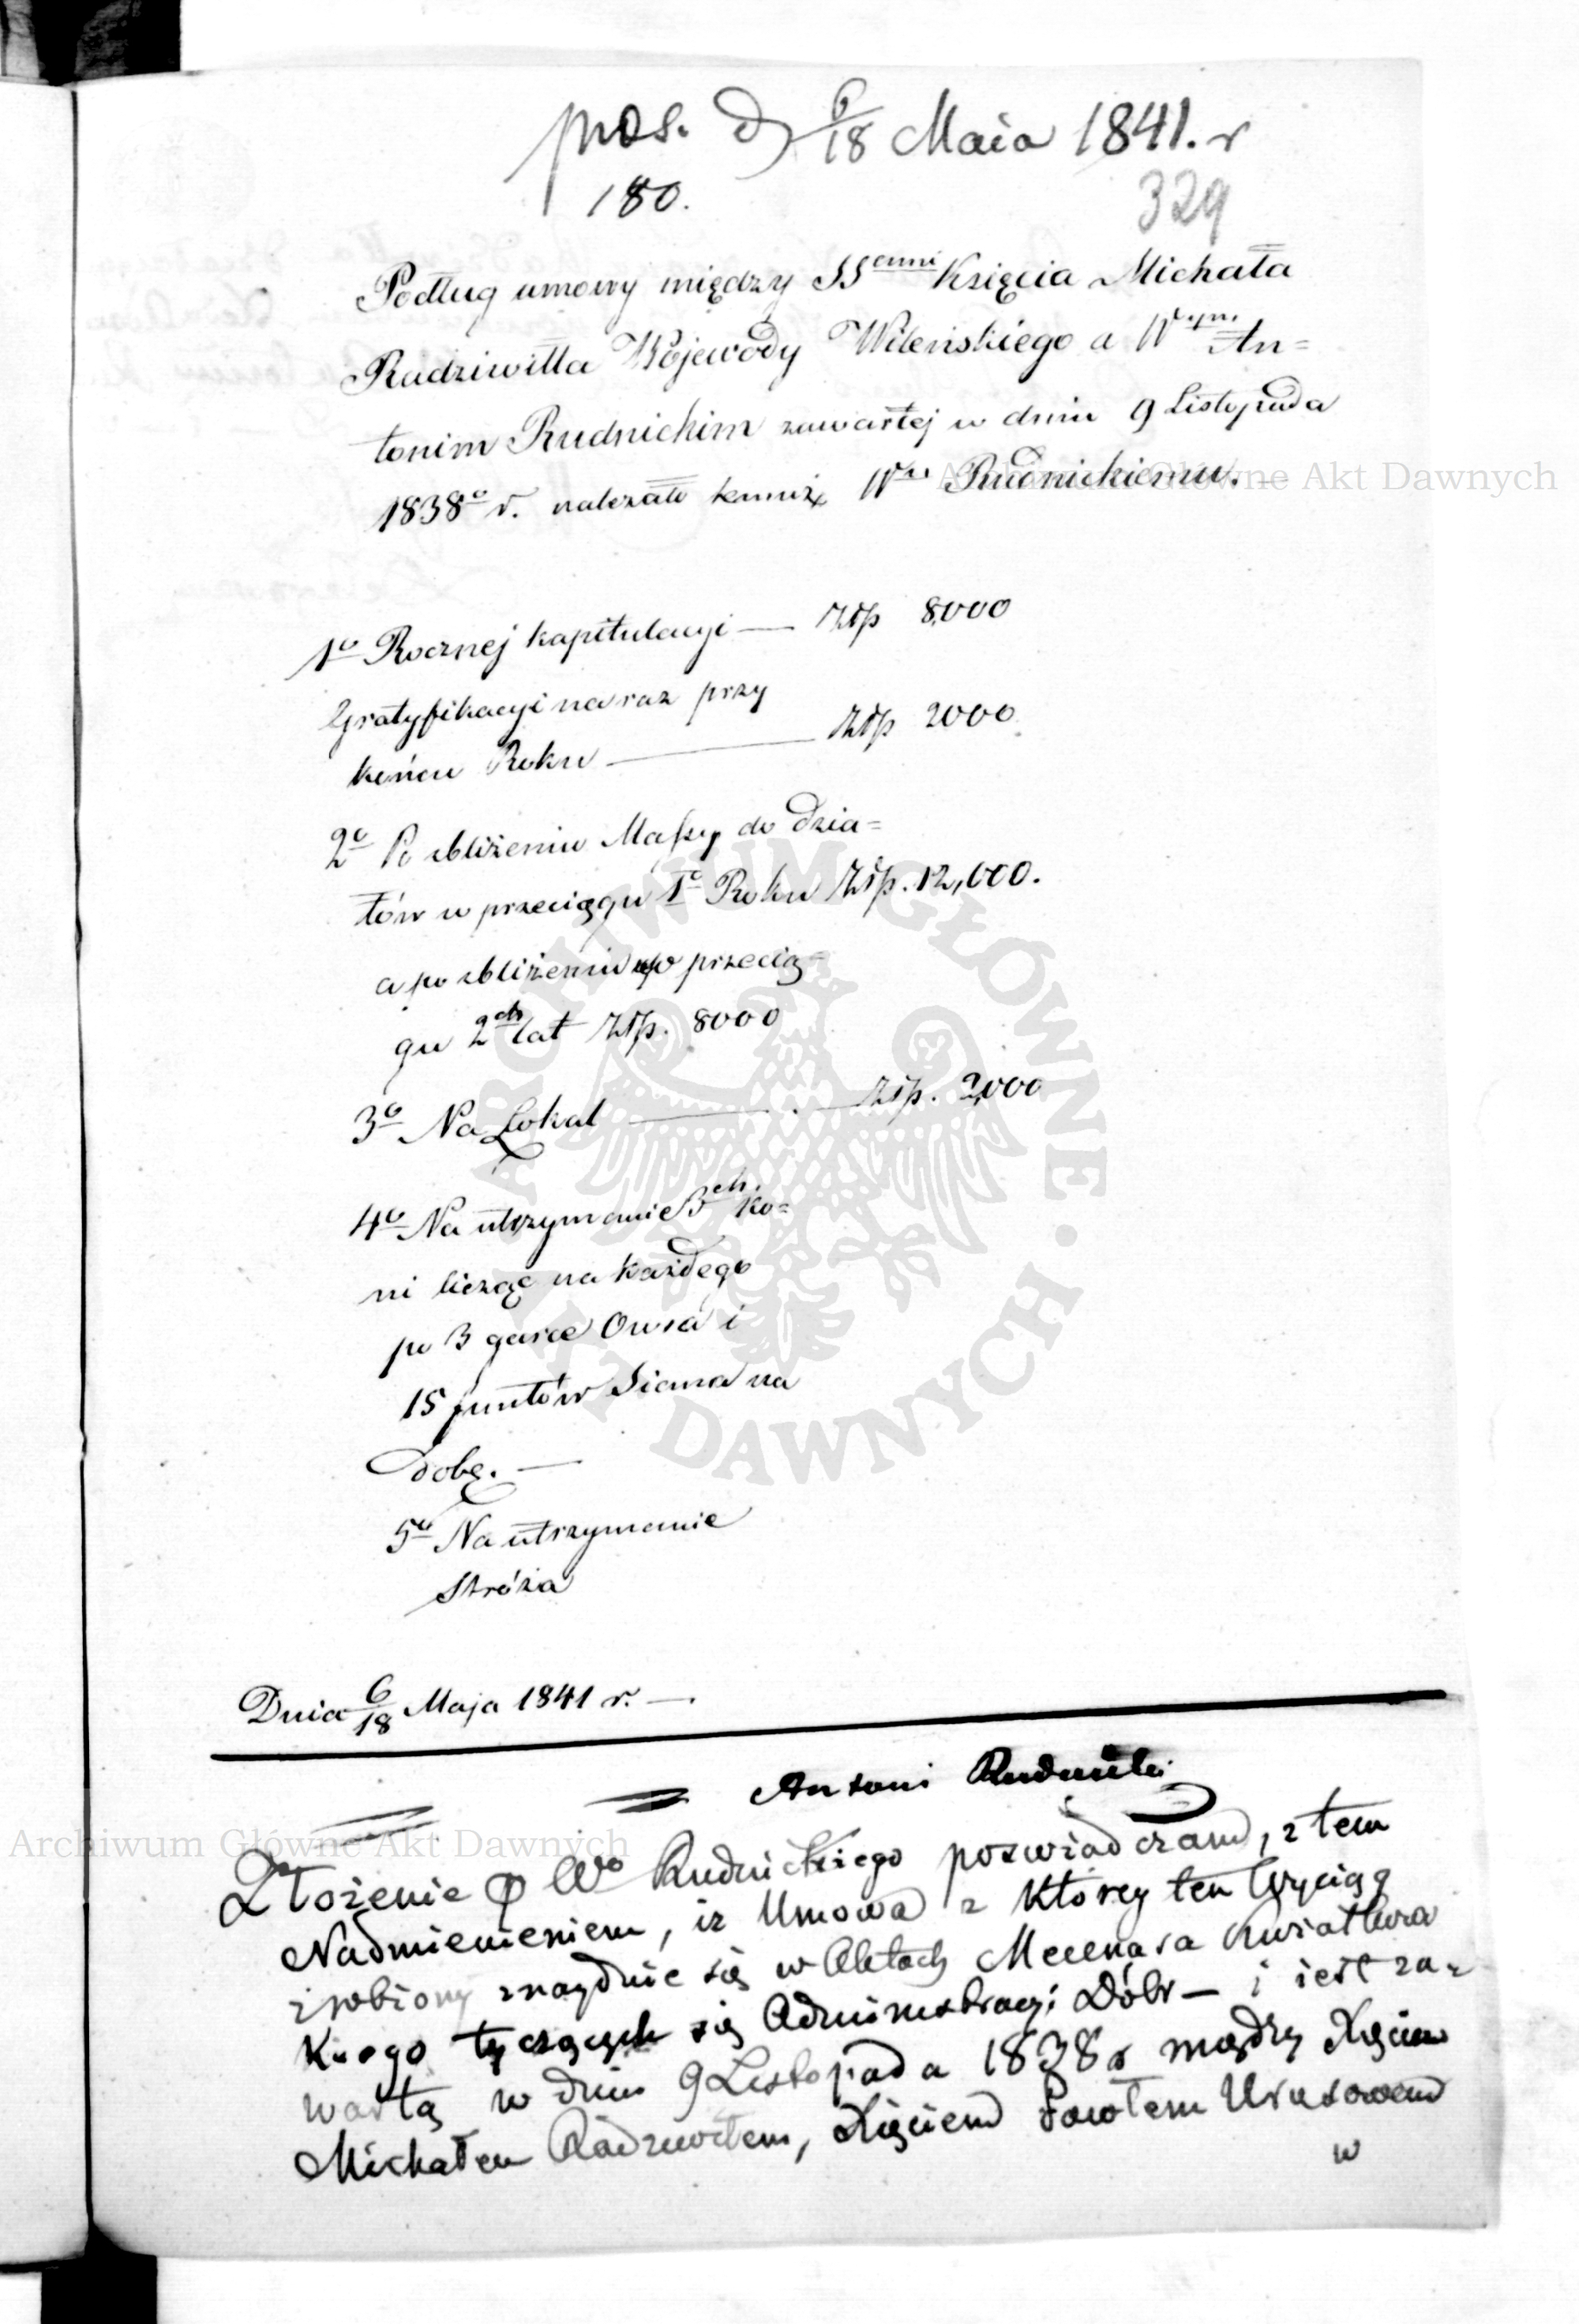 pos. d 6/18 Maia 1841. r
180.
329
Podług umowy między SScmi Księcia Michała
Radziwiłła Wojewody Wileńskiego a Wym An=
tonim Rudnickim zawartej w dniu 9 Listopada
1838o r. należało temuż Wu Rudnickiemu. —
Archiwum Główne Akt Dawnych
1o Rocznej kapitulacyi — Złp 8,000
Gratyfikacyi na raz przy
końcu Roku — Złp 2000
2o Po zbliżeniu Massy do dzia=
łów w przeciągu 1o Roku Złp. 12,000.
a po zbliżeniu w przecią=
gu 2ch lat Złp. 8000
3o Na Lokal — Złp. 2,000
4o Na utrzymanie 3ch ko=
ni licząc na każdego
po 3 garce Owsa i
15 funtów Siana na
Dobę. —
5o Na utrzymanie
Stróża
ARCHIWUM GŁÓWNE AKT DAWNYCH
Dnia 6/18 Maja 1841 r. —
Antoni Rudnicki
Archiwum Główne Akt Dawnych
Złożenie p Wo Rudnickiego poswiadczam, z tem
Nadmienieniem, iz Umowa z ktorey ten Wyciąg
zrobiony znayduie się w Aktach Mecenasa Kwiatkow
kiego tyczących się Administracyi Dóbr — i iest za=
wartą w dniu 9 Listopada 1838 r między Xięciem
Michałem Radziwiłłem, Xięciem Pawłem Urusowem
w